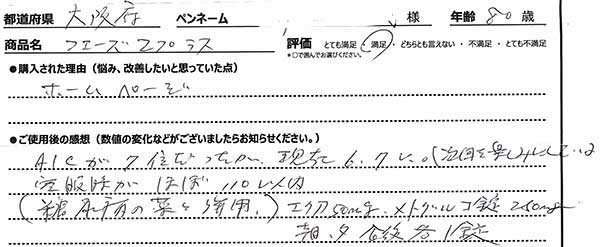 都道府県 大阪府 ペンネーム 様 年齢 80 歳
商品名 フェーズ2プラス 評価 とても満足・満足・どちらとも言えない・不満足・とても不満足
*○で囲んでお選びください。
●購入された理由(悩み、改善したいと思っていた点)
ホームページ
●ご使用後の感想(数値の変化などがございましたらお知らせください。)
A1cが7位だったが、現在6.7に。(次回を楽しみにしている
空腹時がほぼ110以内
(糖尿病の薬を併用。) エクア50mg、メトグルコ錠250mg
朝、夕食後各1錠